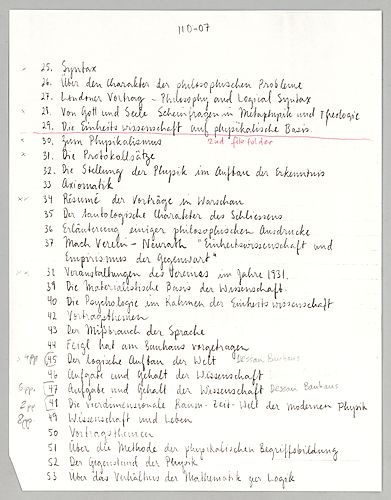 110-07
25. Syntax
26. Über den Charakter der philosophischen Probleme
27. Londoner Vortrag - Philosophy and Logical Syntax
x 28. Von Gott und Seele Scheinfragen in Metaphysik und Theologie
29. Die Einheitswissenschaft auf physikalische Basis.
x 30. Zum Physikalismus 2nd file folder
x 31. Die Protokollsätze
32. Die Stellung der Physik im Aufbau der Erkenntnis
33 Axiomatik
34 Résumé der Vorträge in Warschau
35 Der tautologische Charakter des Schliessens
36 Erläuterung einiger philosophischen Ausdrücke
37 Mach Verein - Neurath "Einheitswissenschaft und
Empirismus der Gegenwart"
38 Veranstaltungen des Vereines im Jahre 1931.
39 Die Materialistische Basis der Wissenschaft.
40 Die Psychologie im Rahmen der Einheitswissenschaft
42 Vortragsthemen
43 Der Mißbrauch der Sprache
44 Feigl hat am Bauhaus vorgetragen
4pp. 45 Der logische Aufbau der Welt Dessau Bauhaus
46 Aufgabe und Gehalt der Wissenschaft
6pp. 47 Aufgabe und Gehalt der Wissenschaft Dessau Bauhaus
2pp 48 Die vierdimensionale Raum-Zeit-Welt der modernen Physik
8pp. 49 Wissenschaft und Leben
50 Vortragsthemen
51 Über die Methode der physikalischen Begriffsbildung
52 Der Gegenstand der Physik
53 Über das Verhältnis der Mathematik zur Logik